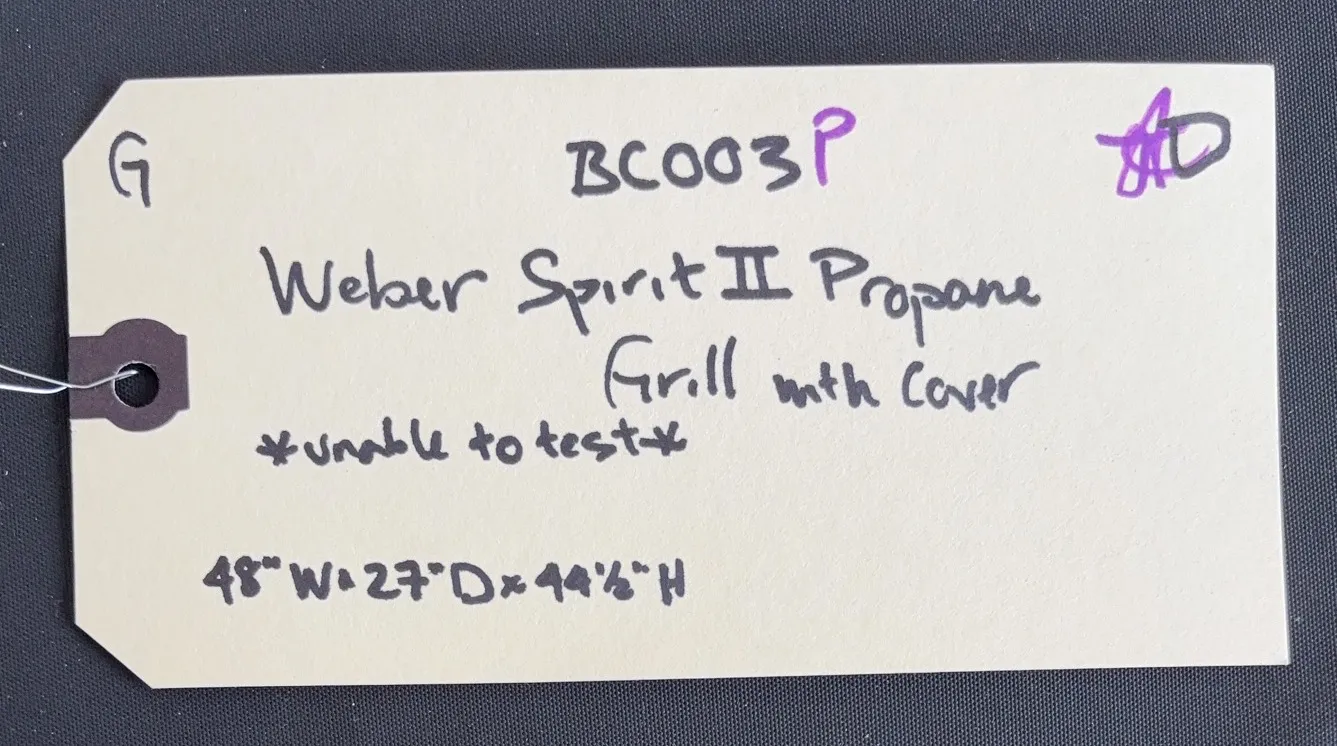 G BC003P D
Weber Spirit II Propane
Grill with Cover
*unable to test*
48" W x 27" D x 44 1/2" H